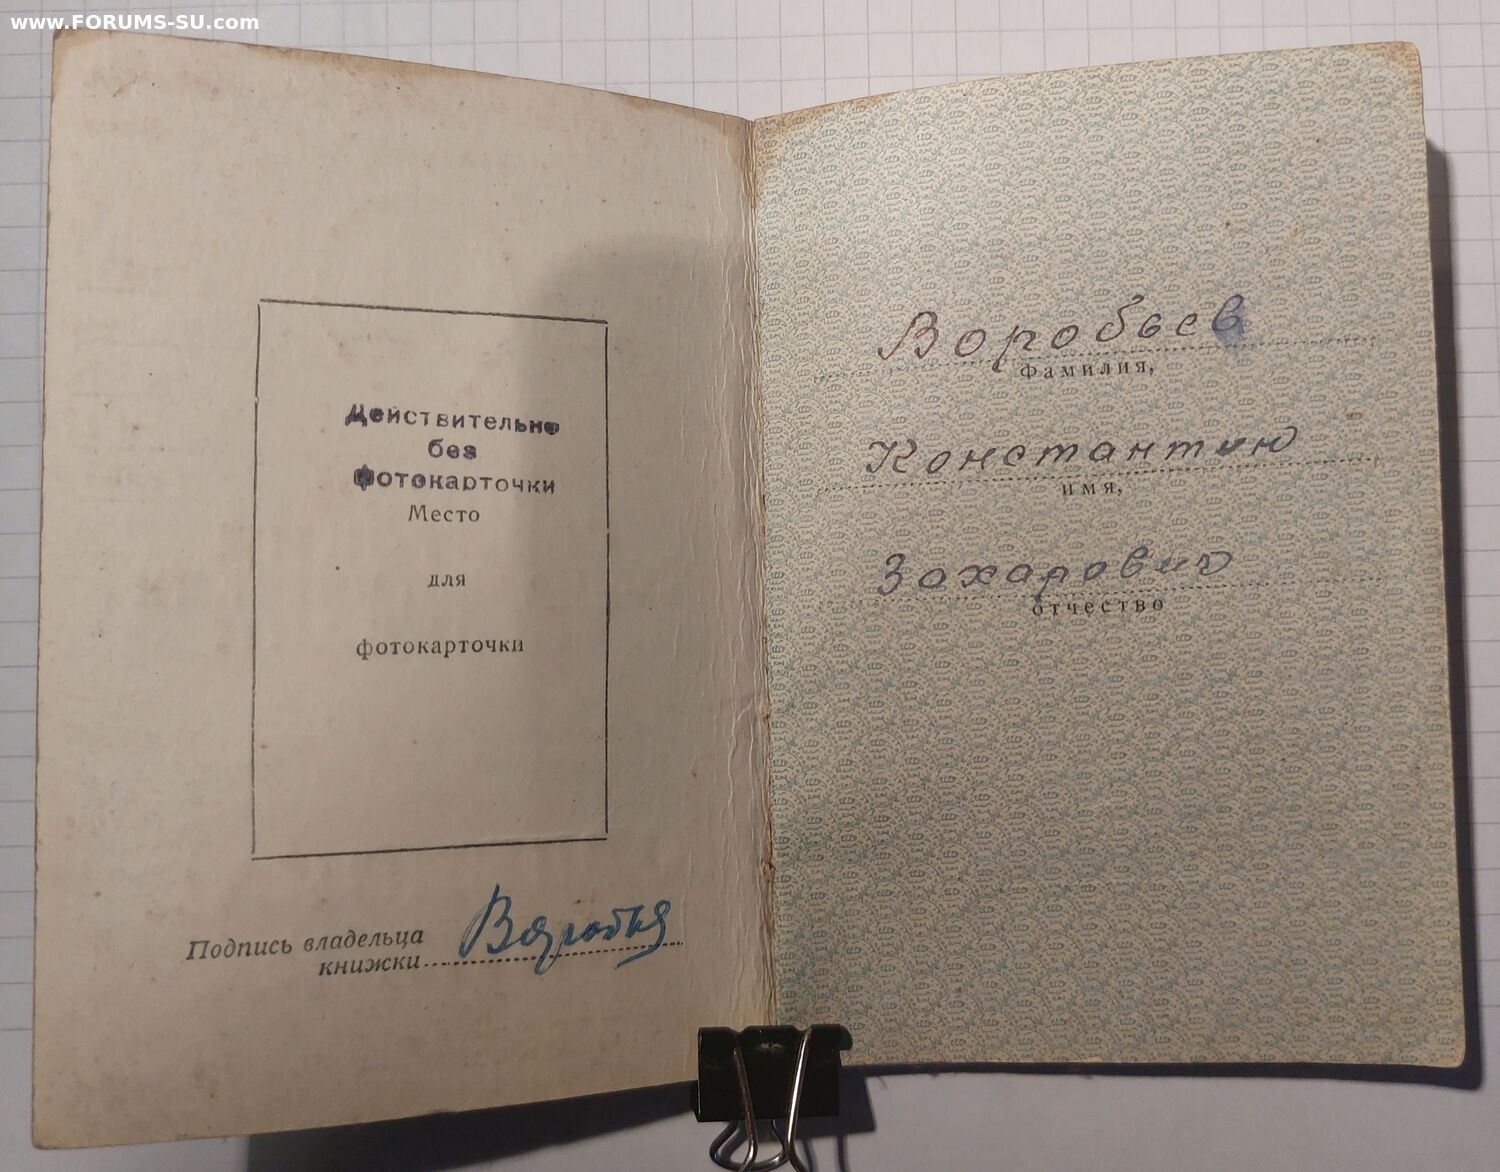 www.FORUMS-SU.com
Действительно
без
фотокарточки
Место
для
фотокарточки
Подпись владельца
книжки
Воробьев
фамилия,
Константин
имя,
Захарович
отчество